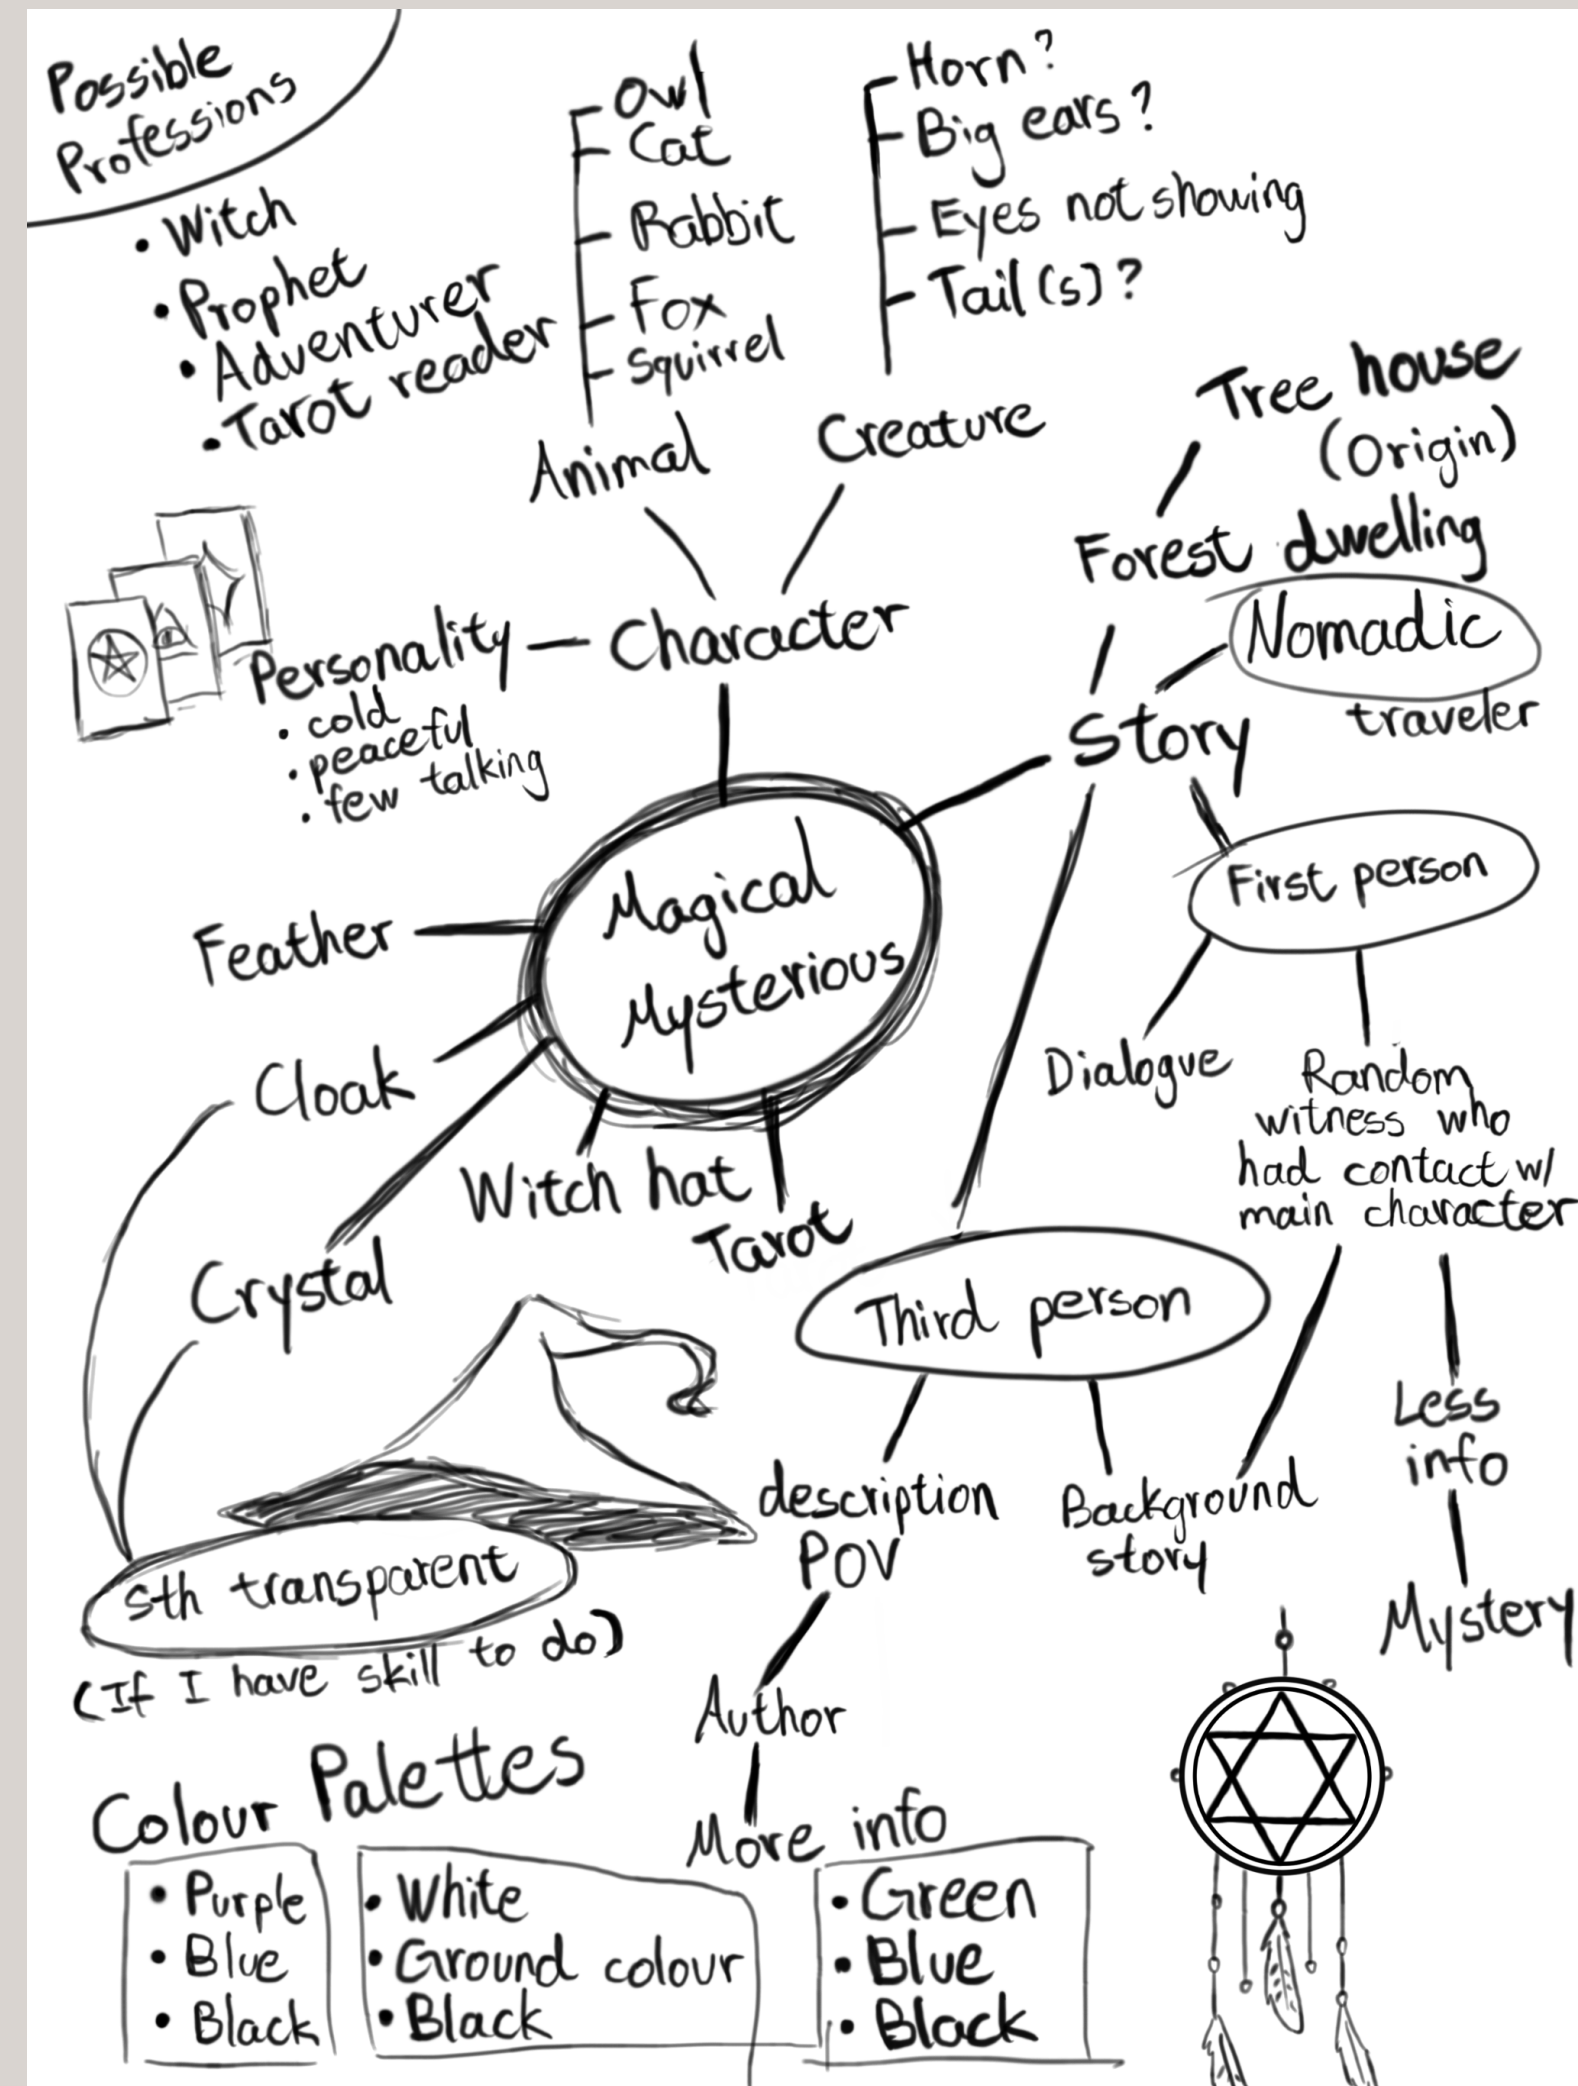 Possible
Professions
• Witch
• Prophet
• Adventurer
• Tarot reader
Owl
Cat
Rabbit
Fox
Squirrel
Animal
Horn?
Big ears?
Eyes not showing
Tail(s)?
Creature
Tree house
(Origin)
Forest dwelling
Nomadic
traveler
Character
Personality
• cold
• peaceful
• few talking
Story
First person
Magical
Mysterious
Feather
Cloak
Crystal
Witch hat
Tarot
Dialogue
Random
witness who
had contact w/
main character
Third person
Less
info
Mystery
description
POV
Background
story
sth transparent
(If I have skill to do)
Author
More info
Colour Palettes
• Purple
• Blue
• Black
• White
• Ground colour
• Black
• Green
• Blue
• Black